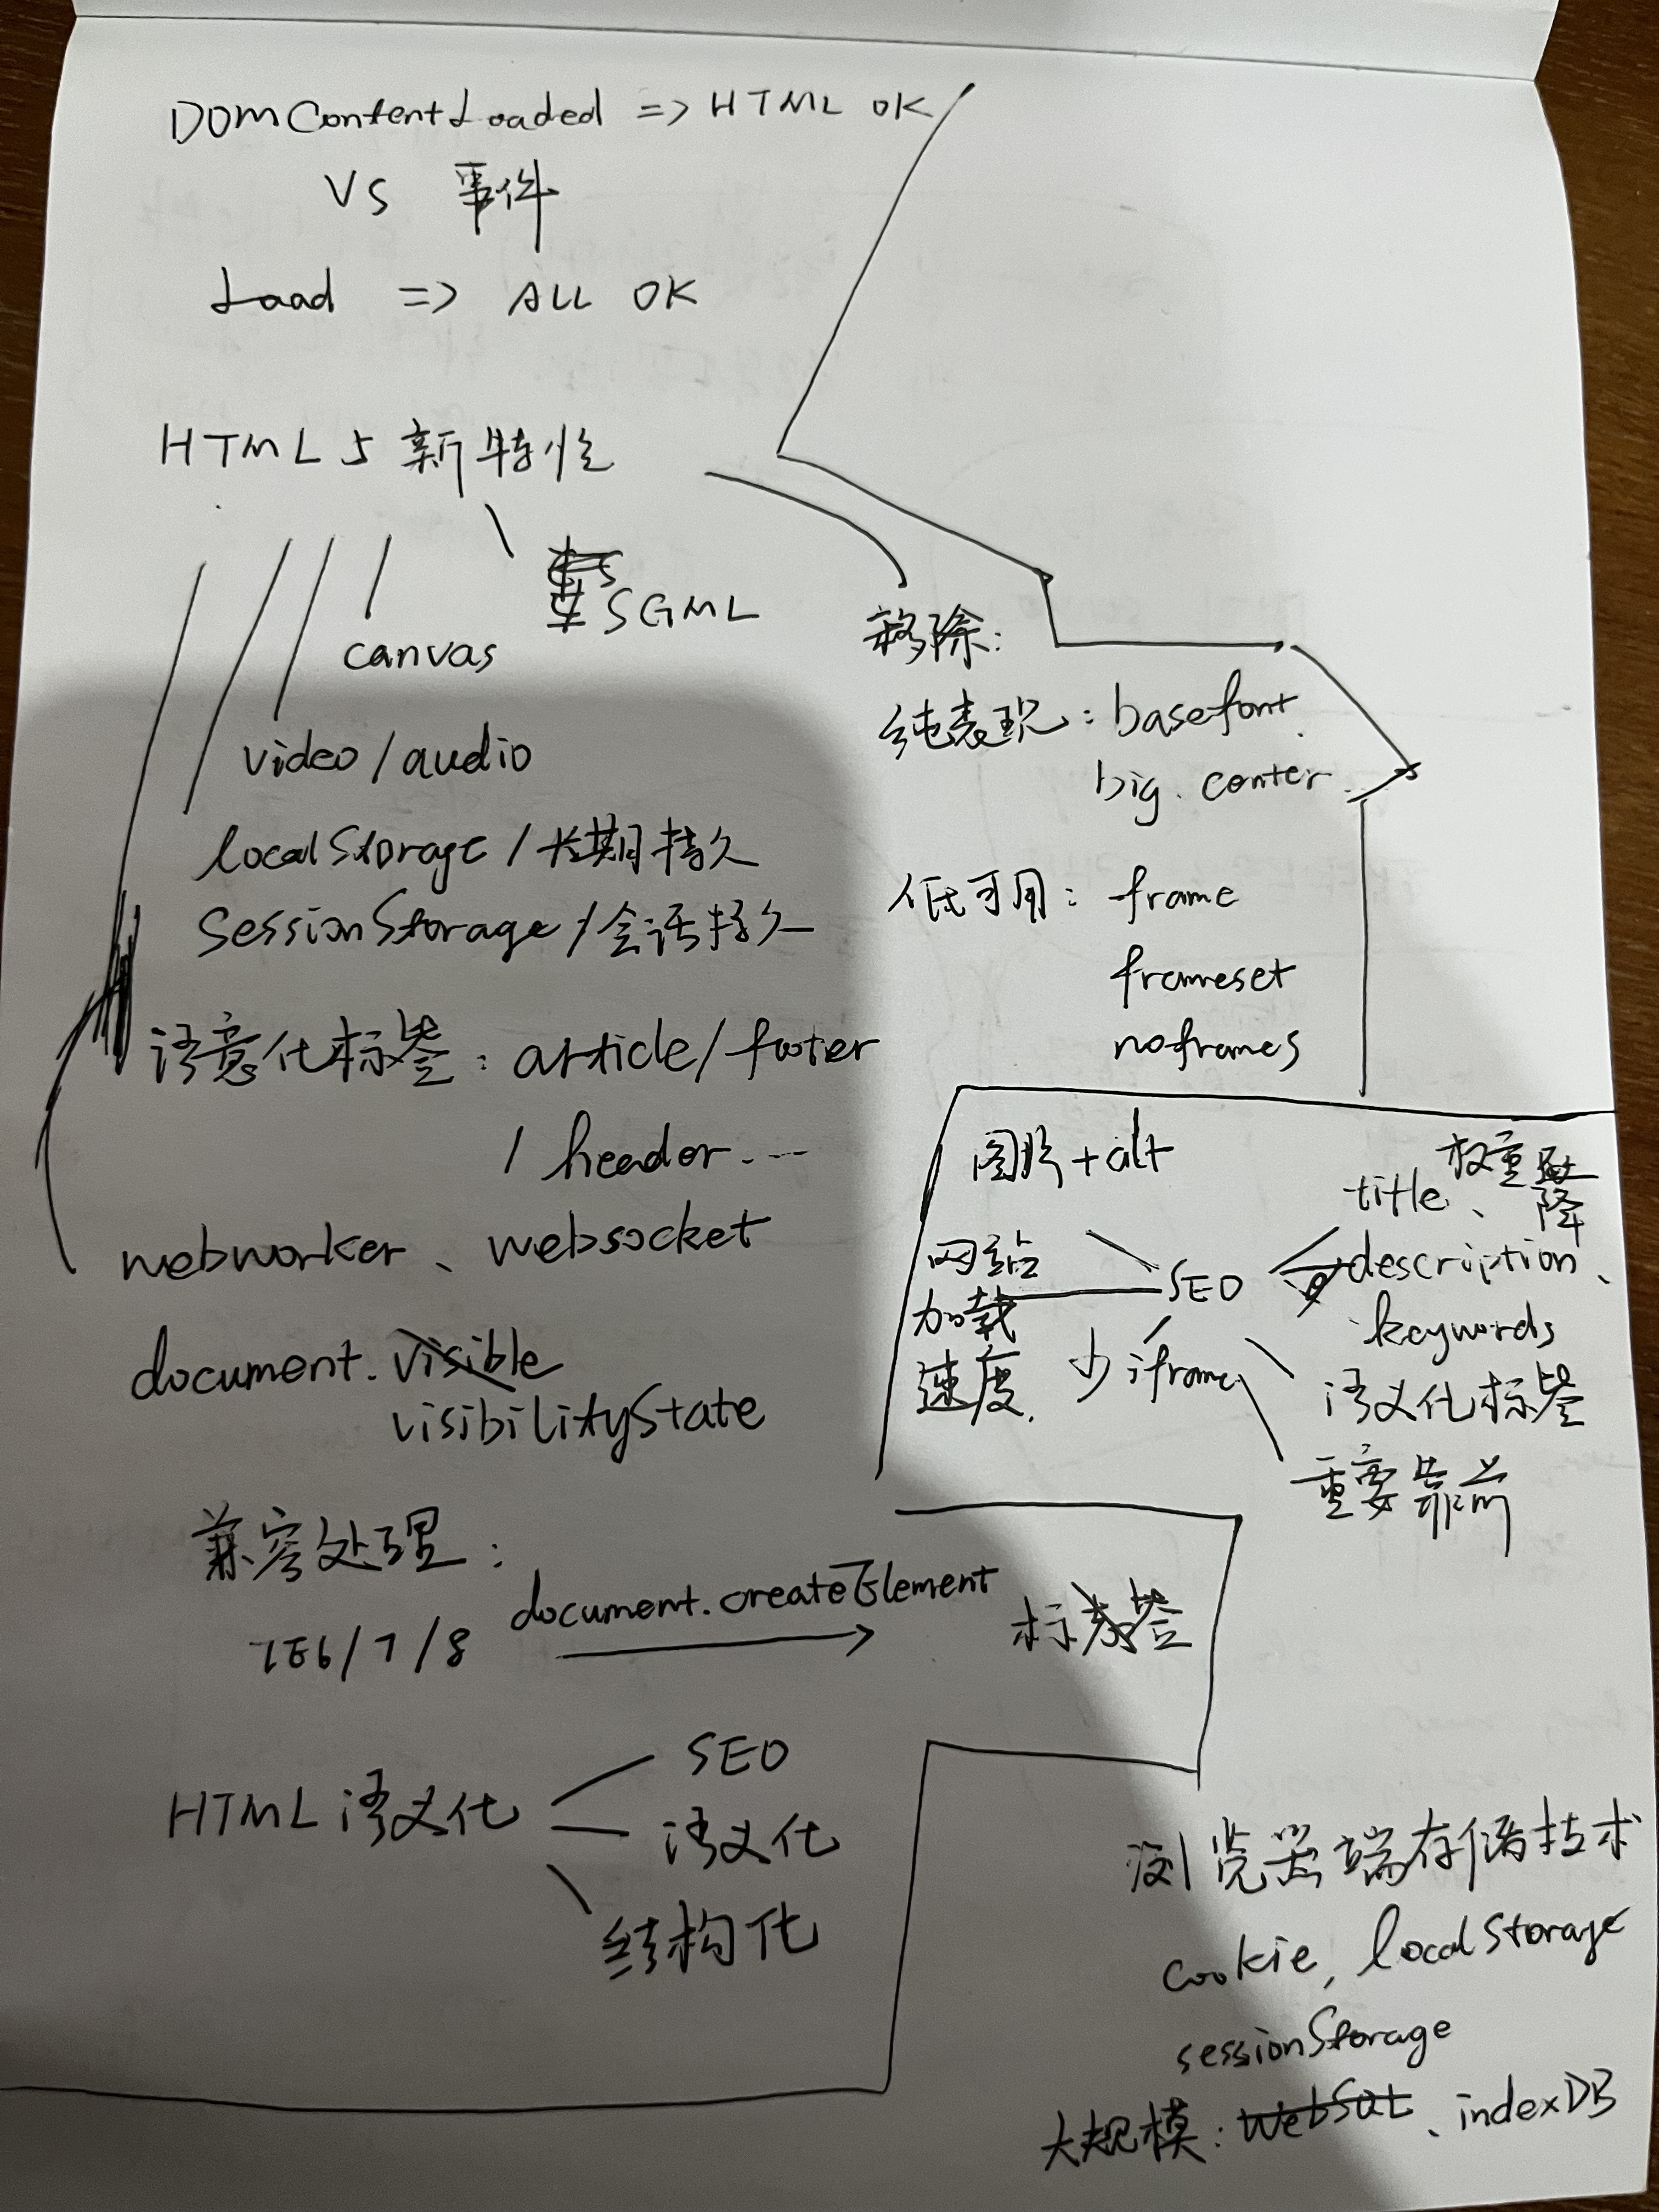 DOMContentLoaded => HTML OK
VS 事件
Load => ALL OK
HTML5新特性
SGML
canvas
video/audio
localStorage/长期持久
sessionStorage/会话持久
语意化标签：article/footer
/header...
webworker、websocket
document.visible
visibilityState
移除：
纯表现：basefont.
big. center.
低可用：frame
frameset
noframes
图片+alt
网站
加载
速度.
SEO
少iframe
权重
降
title、
description、
keywords
语义化标签
重要靠前
兼容处理：
IE6/7/8
document.createElement
标签
HTML语义化
SEO
语义化
结构化
浏览器端存储技术
cookie, localStorage
sessionStorage
大规模：WebSQL、indexDB